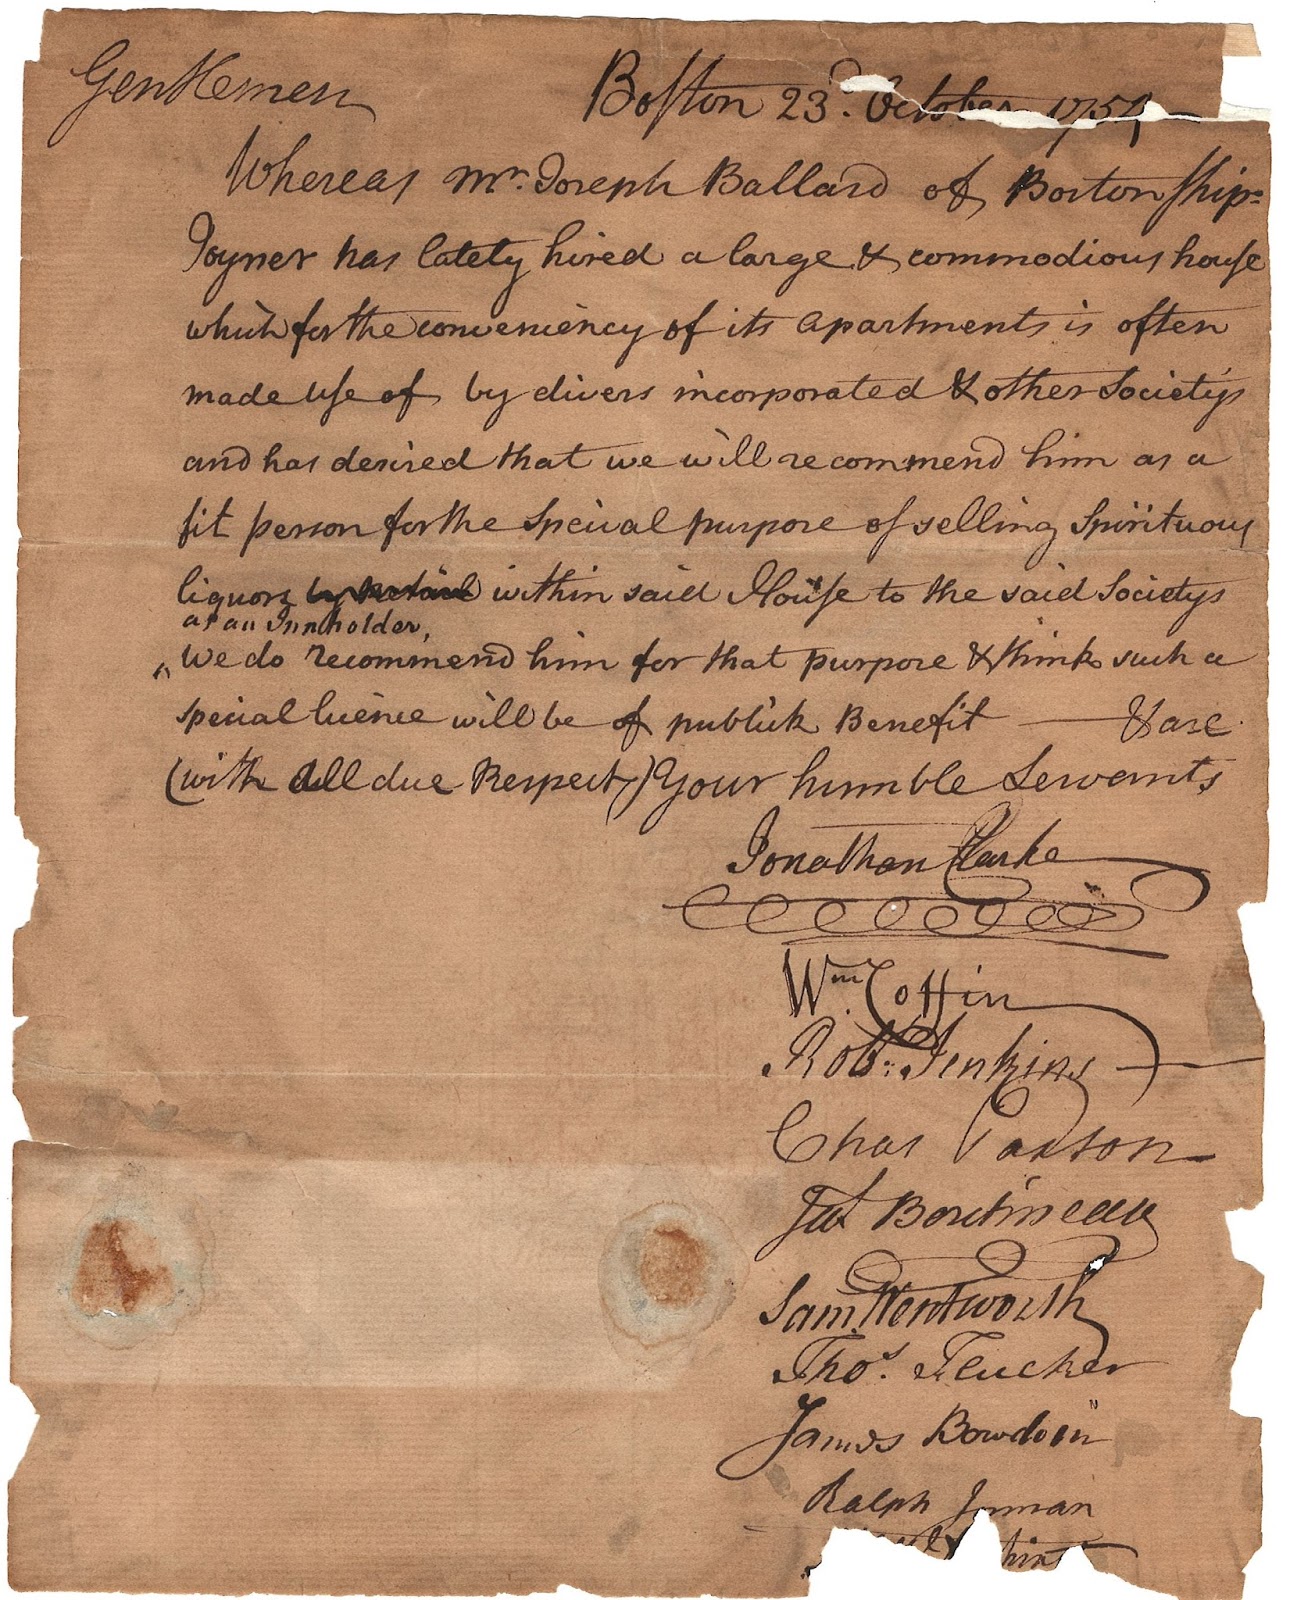 Gentlemen
Boston 23d. October 1754
Whereas Mr. Joseph Ballard of Boston Ship-
Joyner has lately hired a large & commodious house
which for the conveniency of its Apartments is often
made use of by divers incorporated & other Societys
and has desired that we will recommend him as a
fit person for the special purpose of selling Spirituous
liquors by Retail within said House to the said Societys
as an Innholder,
We do recommend him for that purpose & think such a
special licence will be of publick Benefit — & are
(with All due Respect) Your humble Servants
Jonathan Clarke
Wm. Coffin
Robt. Jenkins
Chas Paxton
Jas Boutineau
Sam Wentworth
Thos. Flucker
James Bowdoin
Ralph Inman